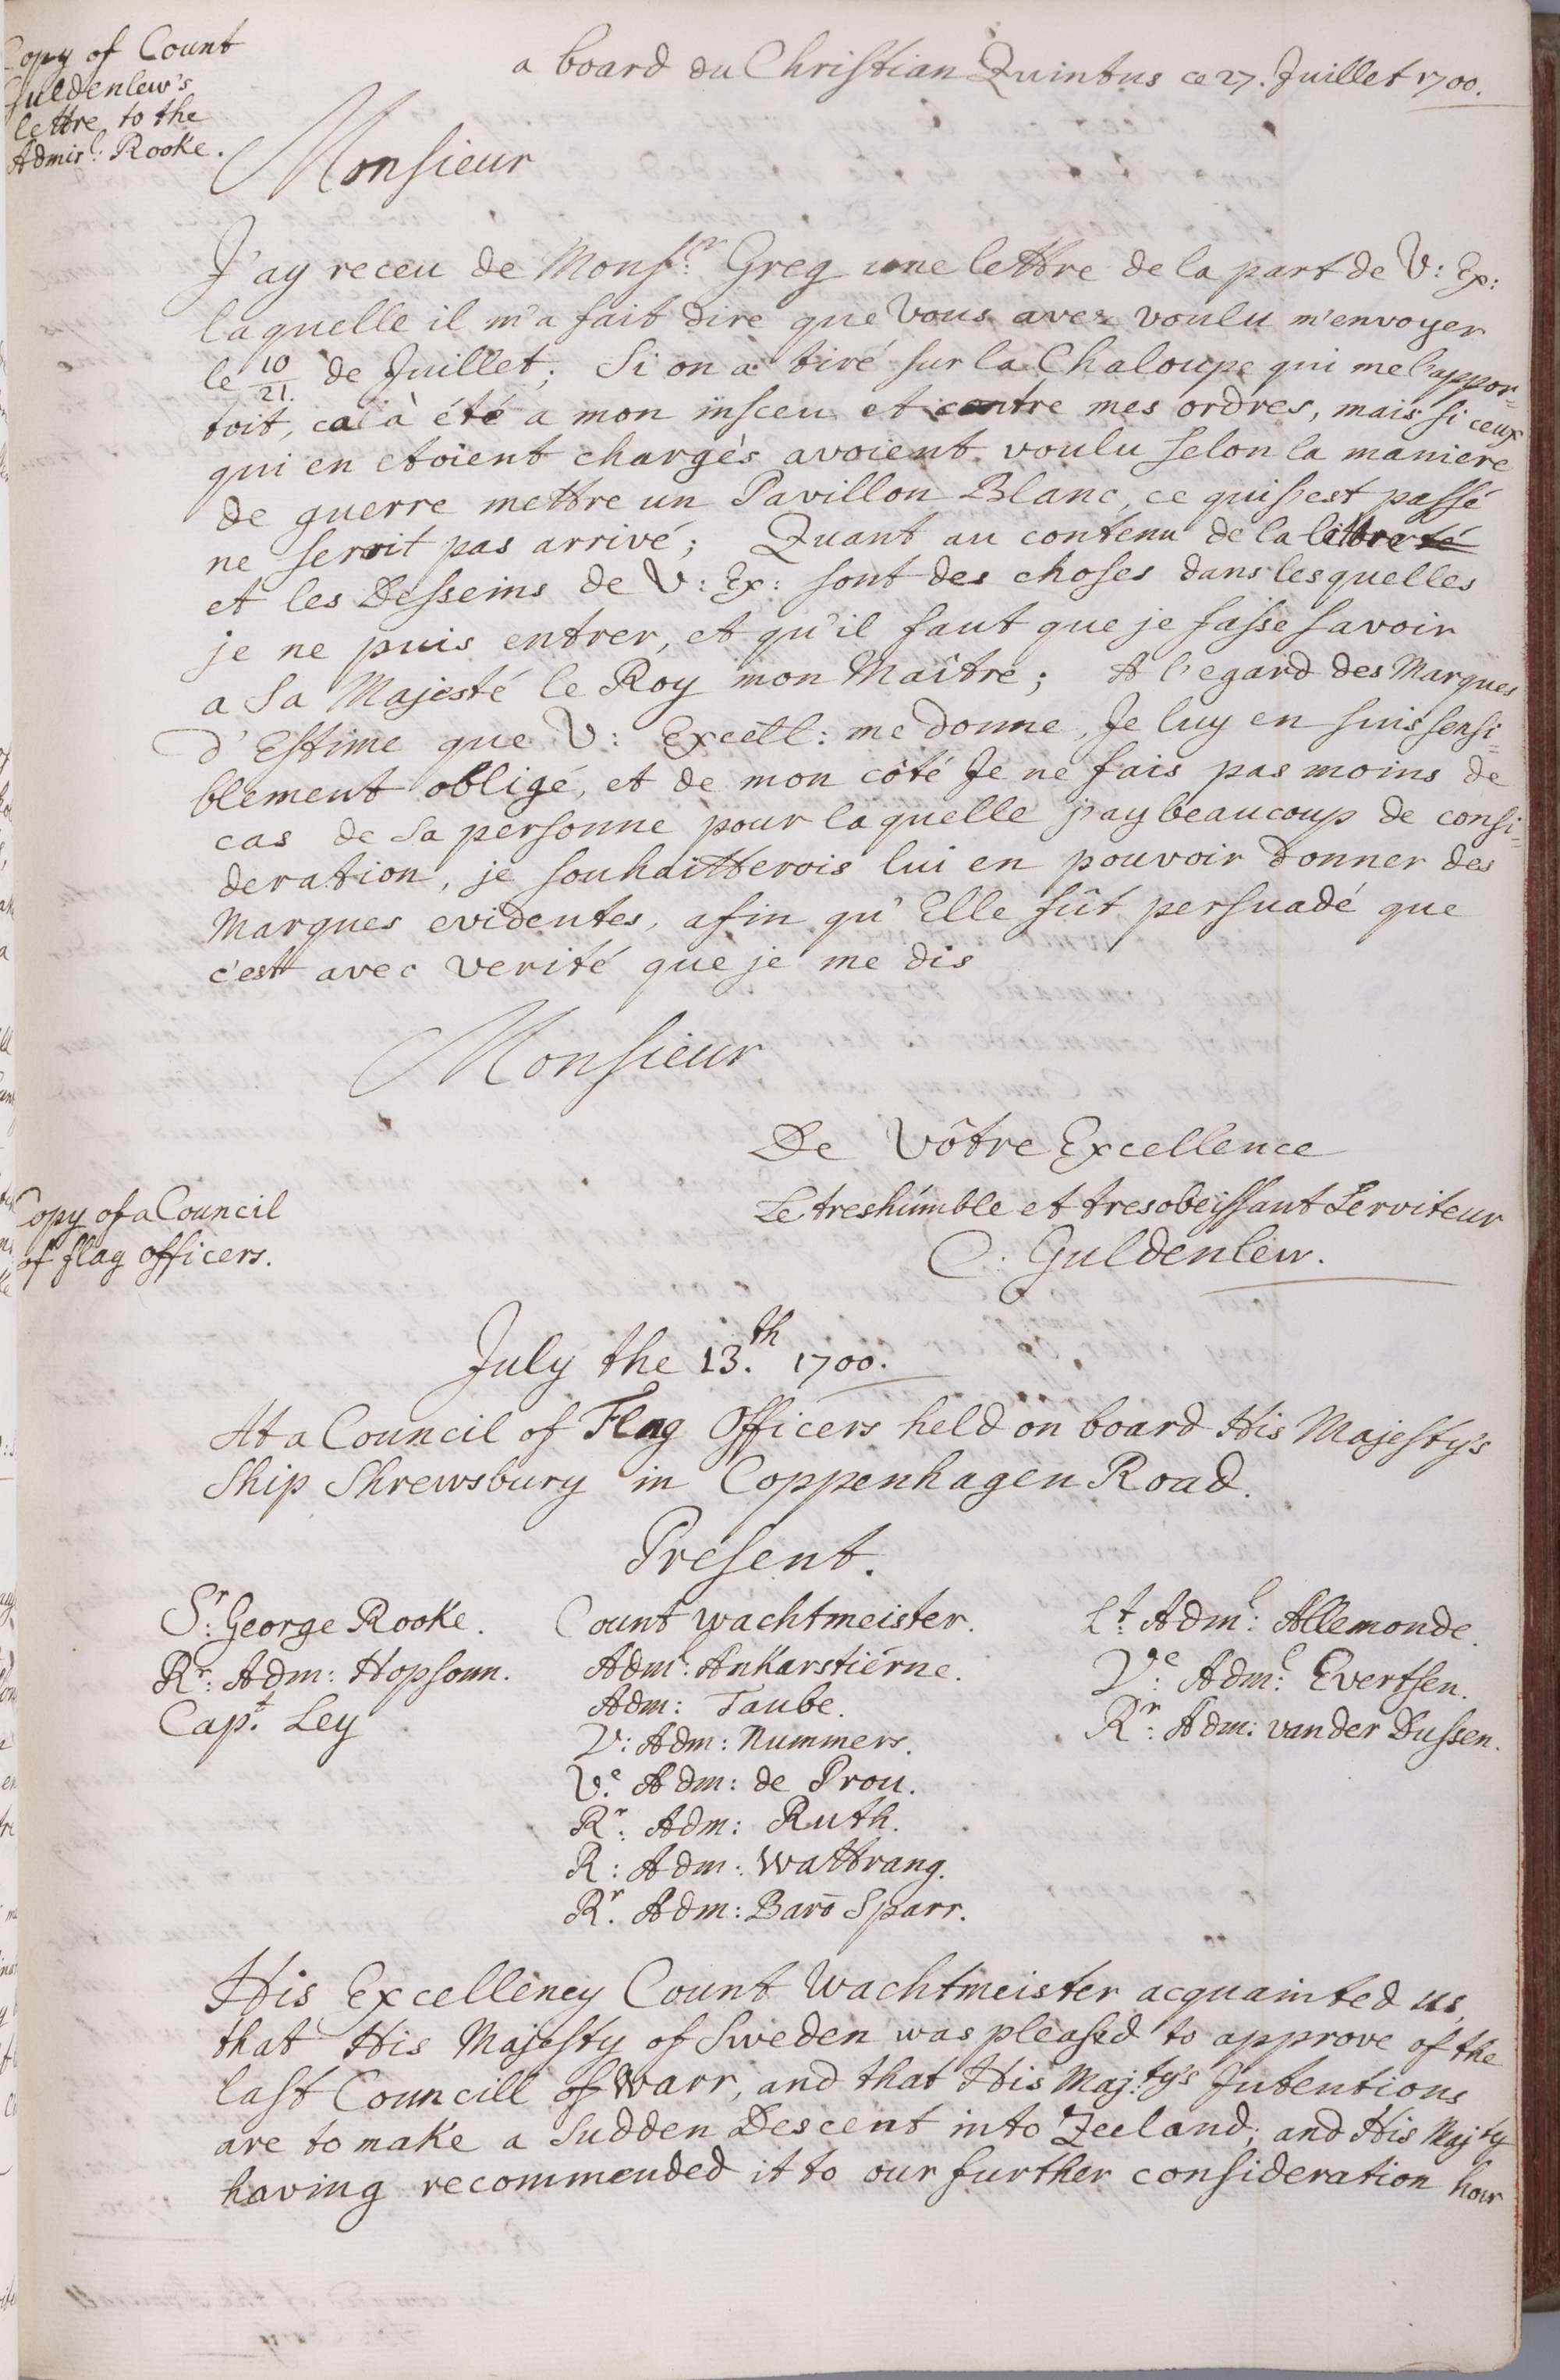 Copy of Count
Guldenlew's
lettre to the
Admir:l Rooke.
a board du Christian Quintus ce 27. Juillet 1700.
Monsieur
J'ay receu de Mons:r Greg une lettre de la part de V: Ex:
laquelle il m'a fait dire que Vous avez voulu m'envoyer
le 10/21. de Juillet; Si on a tiré sur la Chaloupe qui me l'appor=
toit, cela à été a mon insceu et contre mes ordres, mais si ceux
qui en etoient chargés avoient voulu selon la maniere
de guerre mettre un Pavillon Blanc, ce qui s'est passé
ne seroit pas arrivé; Quant au contenu de la lettre
et les Desseins de V: Ex: sont des choses dans lesquelles
je ne puis entrer, et qu'il faut que je fasse savoir
a Sa Majesté le Roy mon Maître; A l'egard des Marques
d'Estime que V: Excell: me donne, Je luy en suis sensi=
blement obligé, et de mon côté Je ne fais pas moins de
cas de Sa personne pour laquelle j'ay beaucoup de consi=
deration, je souhaitterois lui en pouvoir donner des
Marques evidentes, afin qu'Elle fût persuadé que
c'est avec verité que je me dis
Monsieur
De Vôtre Excellence
Le treshumble et tresobeissant Serviteur
C: Guldenlew.
Copy of a Council
of flag officers.
July the 13.th 1700.
At a Council of Flag Officers held on board His Majesty's
Ship Shrewsbury in Coppenhagen Road.
Present.
S:r George Rooke.
R:r Adm: Hopsonn.
Cap:t Ley
Count Wachtmeister.
Adm:l Ankarstierne.
Adm: Taube.
V: Adm: Nummers.
V:e Adm: de Prou.
R:r Adm: Ruth.
R: Adm: Wattrang.
R:r Adm: Barō Sparr.
L:t Adm:l Allemonde.
V:e Adm:l Evertsen.
R:r Adm: van der Dussen.
His Excellency Count Wachtmeister acquainted us,
that His Majesty of Sweden was pleased to approve of the
last Councill of Warr, and that His Maj:ty's Intentions
are to make a Sudden Descent into Zeeland; and His Maj:ty
having recommended it to our further consideration how